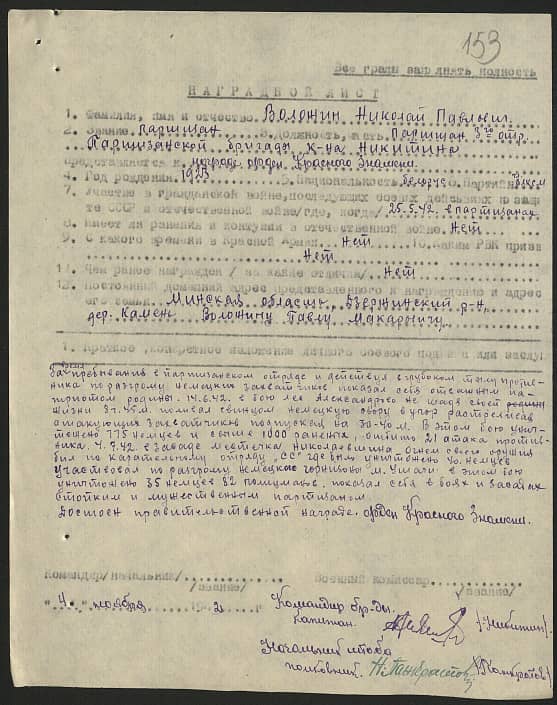 153
Все графы заполнять полность
НАГРАДНОЙ ЛИСТ
1. Фамилия, имя и отчество Воложин Николай Павлович
2. Звание партизан 3. Должность, часть Партизан 3го отр.
Партизанской бригады к-на Никитина
представляется к награде орден Красного Знамени
4. Год рождения 1923 5. Национальность белорус 6. Партийн
7. Участие в гражданской войне, последующих боевых действиях по защи
те СССР и отечественной войне /где, когда/ 25.5.42. в партизанах.
8. Имеет ли ранения и контузии в отечественной войне Нет
9. С какого времени в Красной Армии Нет 10. Каким РВК призва
Нет
11. Чем ранее награжден /за какие отличия/ Нет
12. Постоянный домашний адрес представленного к награждению и адрес
его семьи Минская область Дзержинский р-н,
дер. Камень Воложину Павлу Макаровичу
1. Краткое, конкретное изложение личного боевого подвига или заслуг
пребывания в партизанском отряде и действуя в глубоком тылу против-
ника по разгрому немецких захватчиков показал себя отважным па-
триотом родины. 14.6.42. в бою лес Александрово не щадя своей
жизни поливал свинцом немецкую свору в упор расстреливал
атакующих захватчиков подпуская на 30-40 м. В этом бою унич-
тожено 775 немцев и свыше 1000 раненых, отбито 21 атака против-
ника. 4.9.42. в засаде местечка Николаевщина огнем своего оружия
бил по карательному отряду "СС" где было уничтожено 40 немцев
Участвовал по разгрому немецкого горнизона м. в этом бою
уничтожено 35 немцев 32 полицманов, показал себя в боях и засадах
стойким и мужественным партизаном
Достоин правительственной награде. орден Красного Знамени.
командир/начальник/ военный комиссар
/звание/ /звание/
"4" ноября 1942 г
Командир бр-ды.
капитан. /Никитин/
Начальник штаба
полковник.